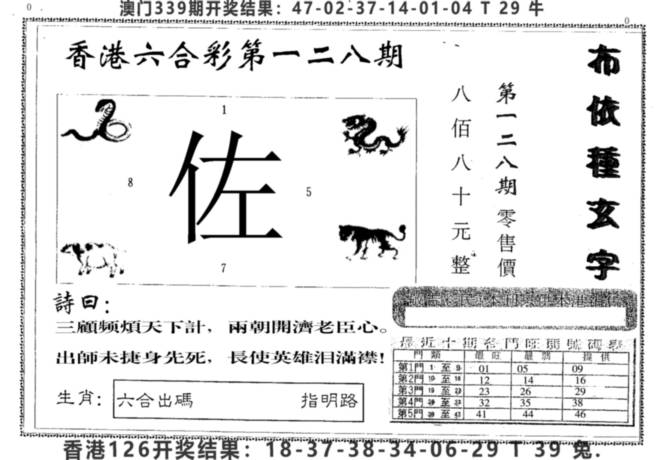 澳门339期开奖结果：47-02-37-14-01-04 T 29 牛
0 0
香港六合彩第一二八期
布依種玄字
第一二八期零售價
八佰八十元整
1
佐
8
5
7
詩曰：
三顧频煩天下計，兩朝開濟老臣心。
出師未捷身先死，長使英雄泪滿襟!
生肖：六合出碼 指明路
最近十期各門旺
門類 提供
第1門 1 至 9 01 05 09
第2門 10 至 18 12 14 16
第3門 19 至 23 26 29
第4門 至 32 35 38
第5門 至 41 44 46
香港126开奖结果：18-37-38-34-06-29 T 39 兔.